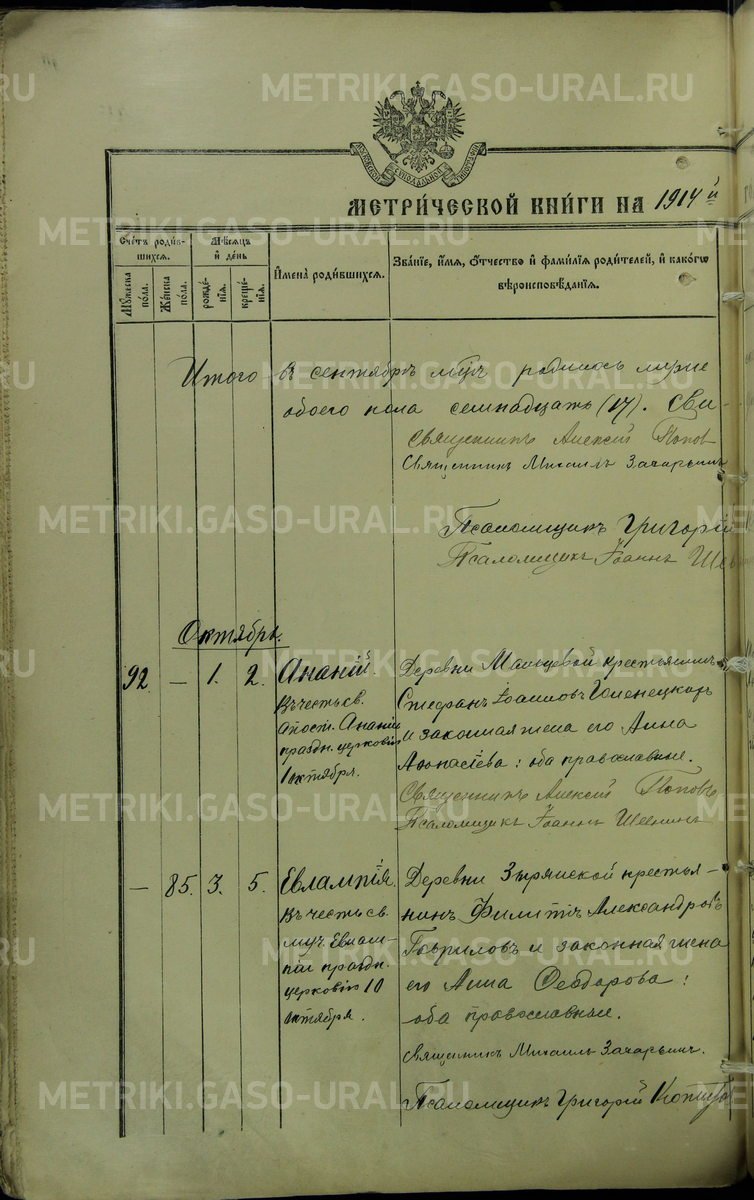 METRIKI.GASO-URAL.RU
МЕТРИЧЕСКОЙ КНИГИ НА 1914 й
Счетъ родив-
шихся.
Мѣсяцъ
и день
Имена родившихся.
Званіе, имя, отчество и фамилія родителей, и какого
вѣроисповѣданія.
Мужеска
пола.
Женска
пола.
рожде-
нія.
креще-
нія.
Итого въ сентябрѣ мцѣ родилось
обоего пола семнадцать (17).
Священникъ Алексій Поповъ
Священникъ Михаилъ Захарьинъ
Псаломщикъ Григорій
Псаломщикъ Іоаннъ
Октябрь.
92. — 1. 2. Ананій.
Въ честь св.
Апост. Ананіи
праздн. церковію
1 октября.
Деревни Мальцевой крестьянинъ
Стефанъ Іоанновъ
и законная жена его Анна
Аѳонасіева: оба православные.
Священникъ Алексій Поповъ
Псаломщикъ Іоаннъ
— 85. 3. 5. Евлампія.
Въ честь св.
муч. Евлам-
піи праздн.
церковію 10
октября.
Деревни Зырянской крестья-
нинъ Филиппъ Александровъ
Гавриловъ и законная жена
его Анна Ѳеодорова:
оба православные.
Священникъ Михаилъ Захарьинъ.
Псаломщикъ Григорій